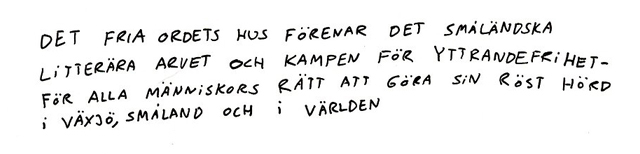 DET FRIA ORDETS HUS FÖRENAR DET SMÅLÄNDSKA
LITTERÄRA ARVET OCH KAMPEN FÖR YTTRANDEFRIHET-
FÖR ALLA MÄNNISKORS RÄTT ATT GÖRA SIN RÖST HÖRD
i VÄXJÖ, SMÅLAND OCH i VÄRLDEN